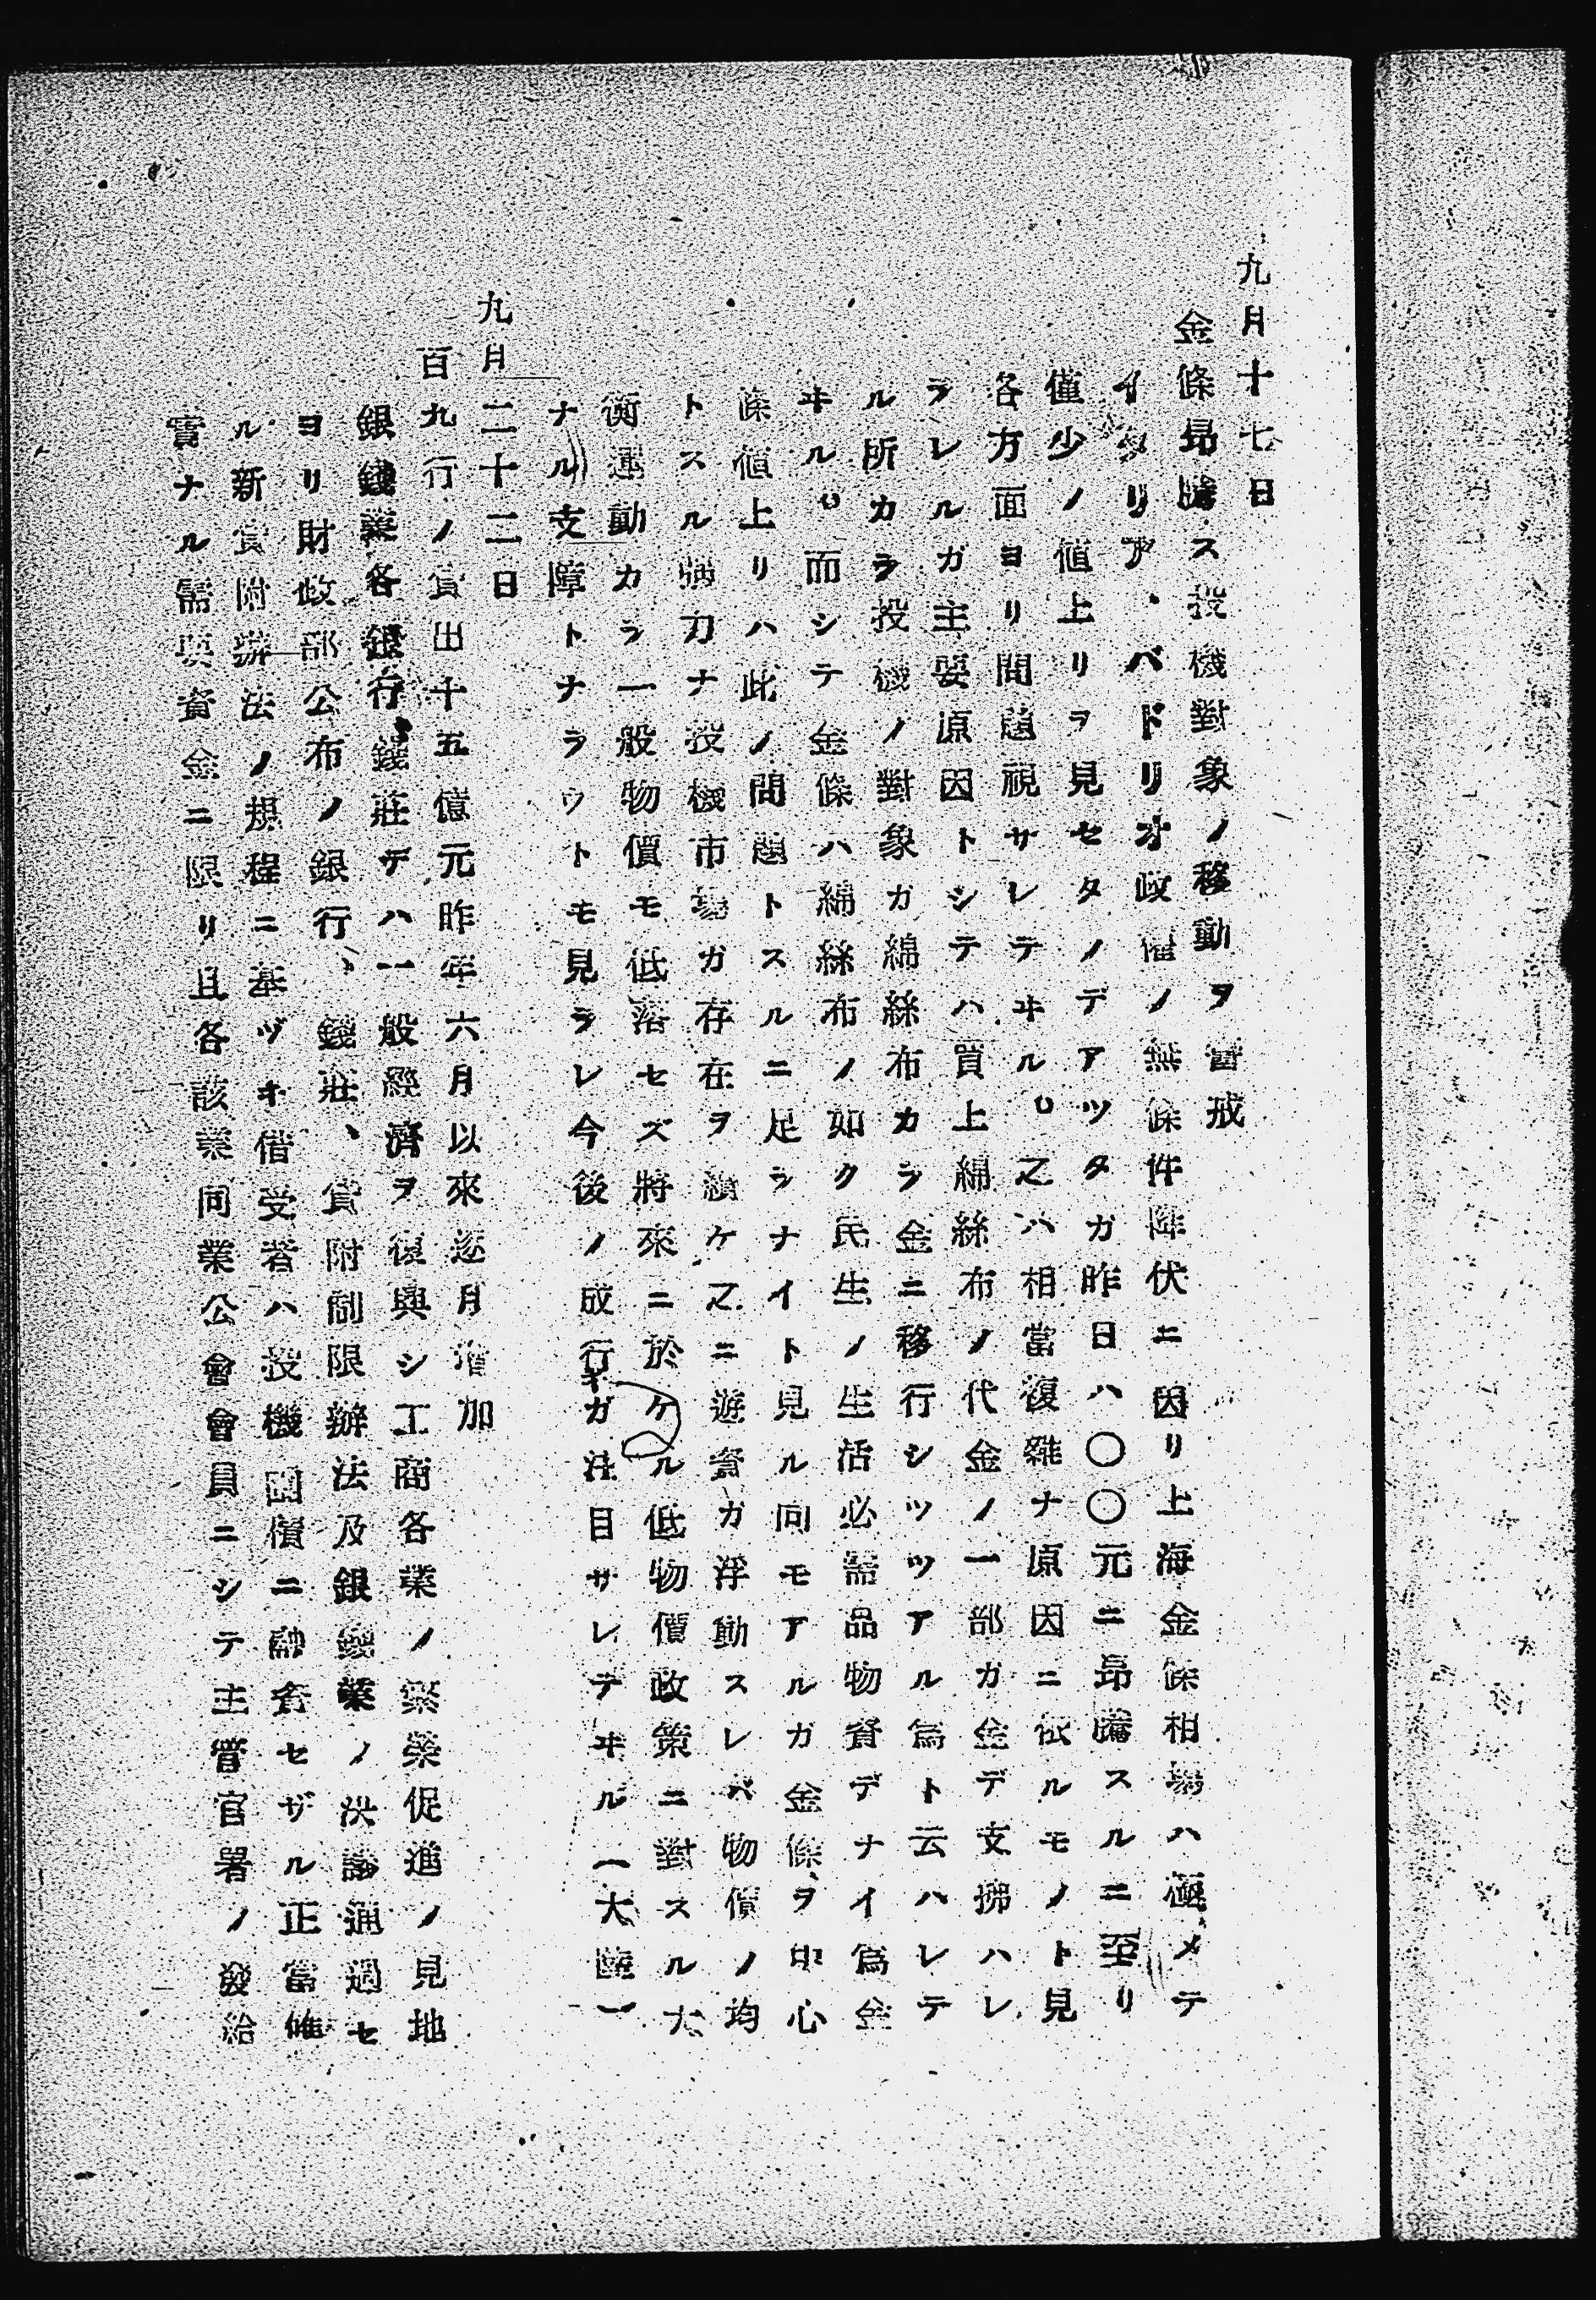 九月十七日
金條昻騰ス投機對象ノ移動ヲ警戒
イタリア、バドリオ政權ノ無條件降伏ニ因リ上海金條相場ハ極メテ
僅少ノ値上リヲ見セタノデアツタガ昨日ハ〇〇元ニ昻騰スルニ至リ
各方面ヨリ問題視サレテヰル。之ハ相當複雜ナ原因ニ依ルモノト見
ラレルガ主要原因トシテハ買上綿絲布ノ代金ノ一部ガ金デ支拂ハレ
ル所カラ投機ノ對象ガ綿絲布カラ金ニ移行シツツアル爲ト云ハレテ
ヰル。而シテ金條ハ綿絲布ノ如ク民生ノ生活必需品物資デナイ爲金
條値上リハ此ノ問題トスルニ足ラナイト見ル向モアルガ金條ヲ中心
トスル強力ナ投機市場ガ存在ヲ續ケ之ニ遊資ガ浮動スレバ物價ノ均
衡運動カラ一般物價モ低落セズ將來ニ於ケル低物價政策ニ對スル大
ナル支障トナラウトモ見ラレ今後ノ成行キガ注目サレテヰル(大陸)
九月二十二日
百九行ノ貸出十五億元昨年六月以來逐月增加
銀錢業各銀行、錢莊デハ一般經濟ヲ復興シ工商各業ノ榮榮促進ノ見地
ヨリ財政部公布ノ銀行、錢莊、貸附制限辦法及銀錢業ノ決議通過セ
ル新貸附辦法ノ規程ニ基ヅキ借受者ハ投機囤積ニ融資セザル正當確
實ナル需要資金ニ限リ且各該業同業公會會員ニシテ主管官署ノ發給